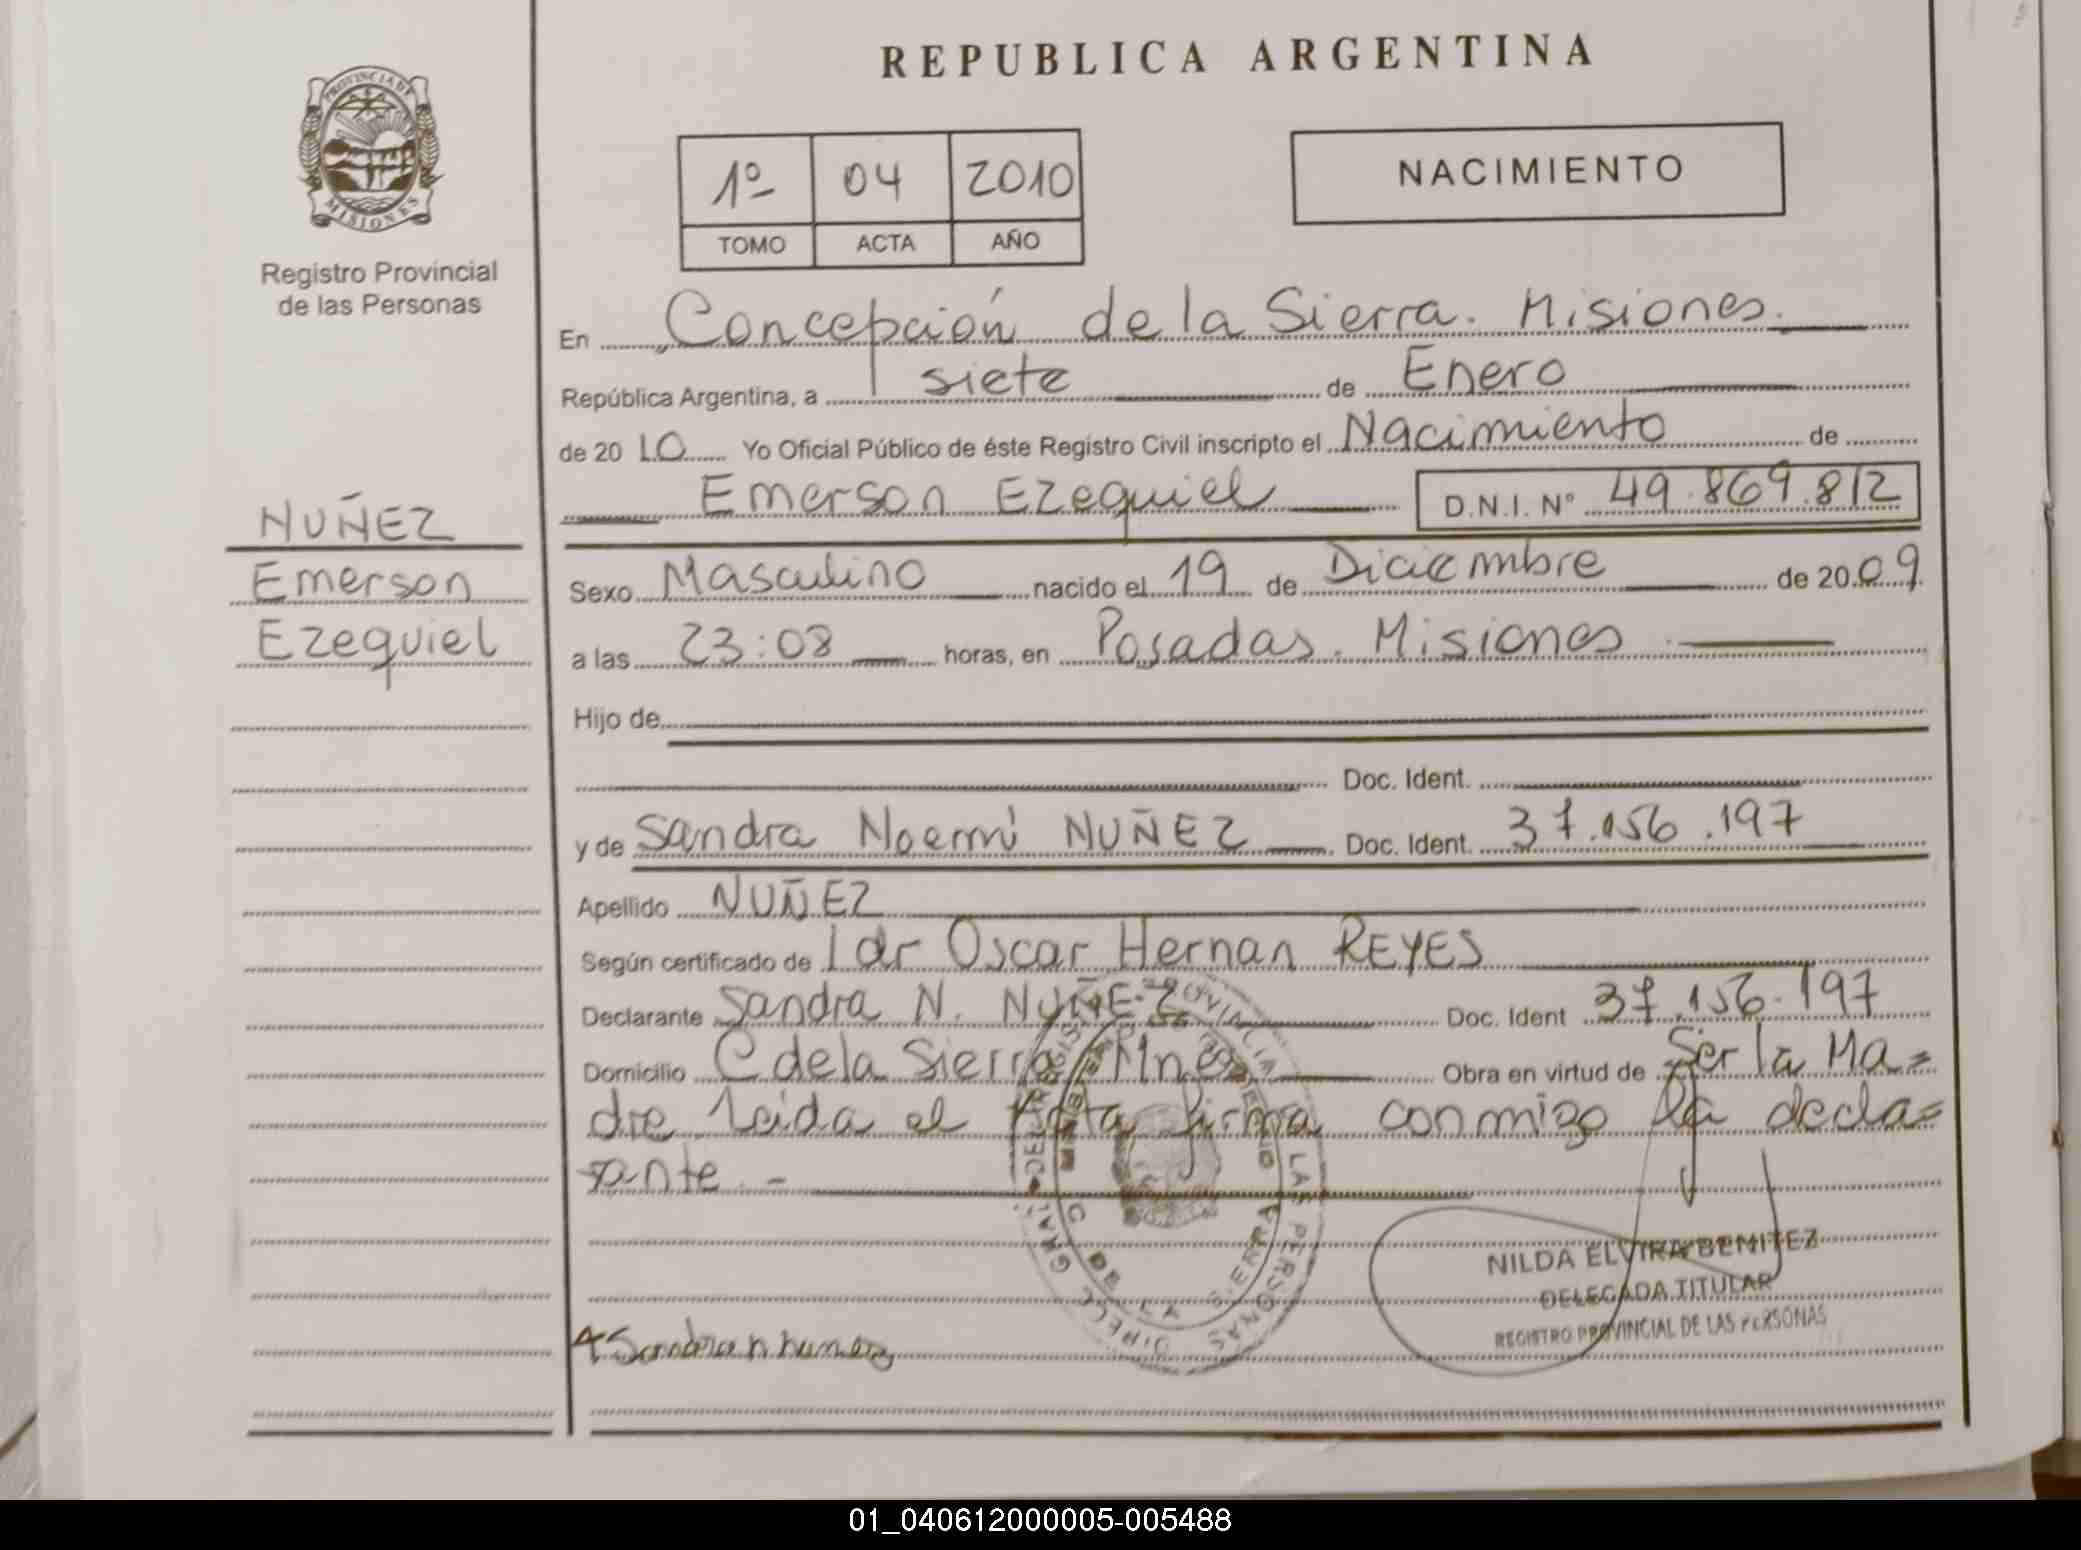 REPUBLICA ARGENTINA
PROVINCIA DE
MISIONES
Registro Provincial
de las Personas
1º 04 2010
TOMO ACTA AÑO
NACIMIENTO
En Concepción de la Sierra. Misiones.
República Argentina, a siete de Enero
de 20 10 Yo Oficial Público de éste Registro Civil inscripto el Nacimiento de
Emerson Ezequiel D.N.I. Nº 49.869.812
NUÑEZ
Emerson
Ezequiel
Sexo Masculino nacido el 19 de Diciembre de 20 09
a las 23:08 horas, en Posadas. Misiones
Hijo de
Doc. Ident.
y de Sandra Noemí NUÑEZ Doc. Ident. 37.156.197
Apellido NUÑEZ
Según certificado de dr Oscar Hernan REYES
Declarante Sandra N. NUÑEZ Doc. Ident 37.156.197
Domicilio C de la Sierra Mnes Obra en virtud de Ser la Ma=
dre Leida el Acta firma conmigo la decla=
rante. -
DIRECC GRAL DEL REGIST PROVINCIAL DE LAS PERSONAS
C DE LA SIERRA
NILDA ELVIRA BENITEZ
DELEGADA TITULAR
REGISTRO PROVINCIAL DE LAS PERSONAS
Sandra n nunez
01_040612000005-005488